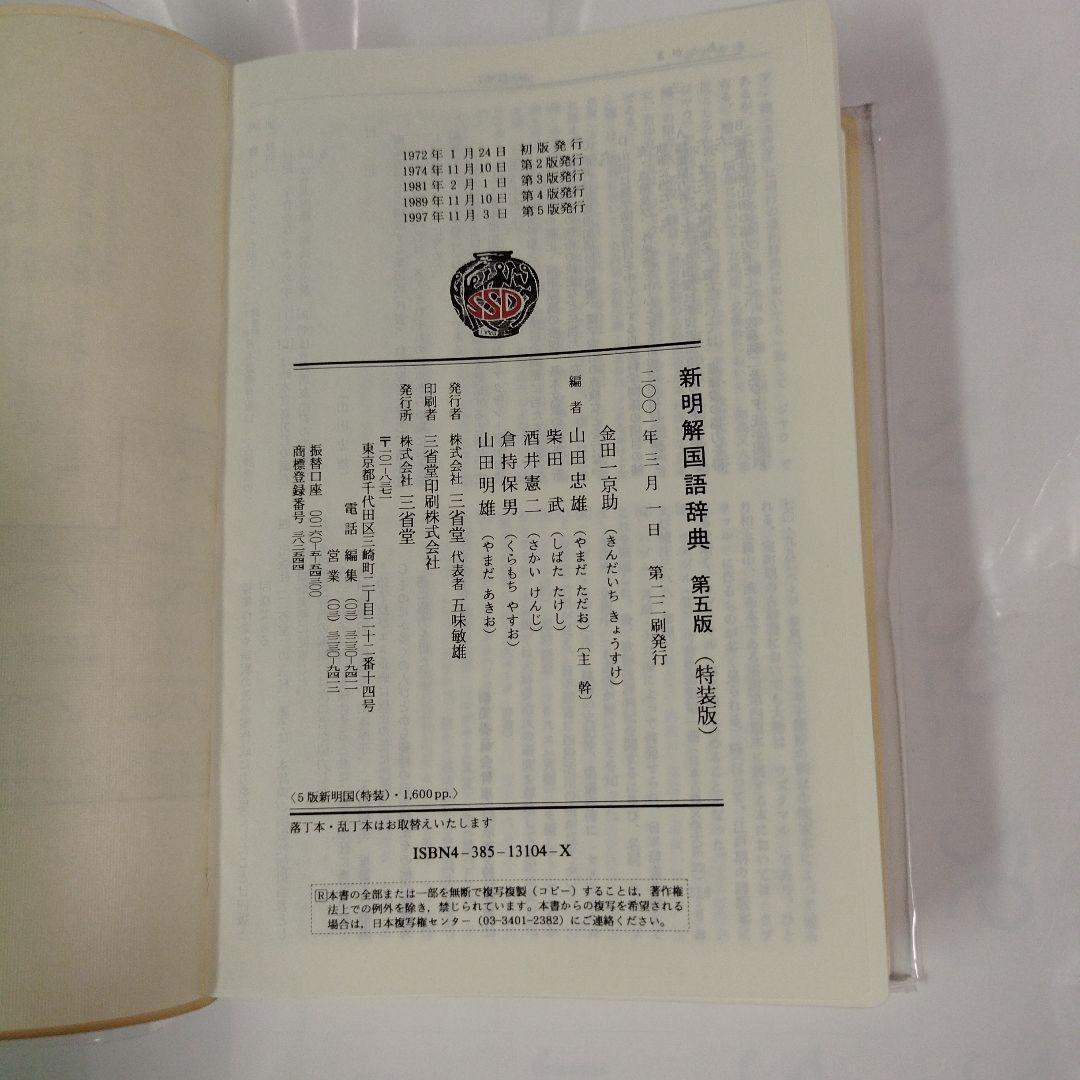 1972年 1 月24日 初版発行
1974年11月10日 第2版発行
1981年 2 月 1 日 第3版発行
1989年11月10日 第4版発行
1997年11月 3 日 第5版発行
SSD
新明解国語辞典 第五版 （特装版）
二〇〇一年 三月 一日 第二二刷発行
金田一京助 （きんだいち きょうすけ）
編 者 山田忠雄 （やまだ ただお）〔主 幹〕
柴田 武 （しばた たけし）
酒井憲二 （さかい けんじ）
倉持保男 （くらもち やすお）
山田明雄 （やまだ あきお）
発行者 株式会社 三省堂 代表者 五味敏雄
印刷者 三省堂印刷株式会社
発行所 株式会社 三省堂
〒一〇一-八三七一
東京都千代田区三崎町二丁目二十二番十四号
電話 編集 （〇三）三二三〇-九四一一
営業 （〇三）三二三〇-九四一二
振替口座 〇〇一六〇-五-五四三〇〇
商標登録番号 三八二五四四
〈5版新明国(特装)・1,600pp.〉
落丁本・乱丁本はお取替えいたします
ISBN4-385-13104-X
Ⓡ本書の全部または一部を無断で複写複製（コピー）することは，著作権
法上での例外を除き，禁じられています。本書からの複写を希望される
場合は，日本複写権センター（03-3401-2382）にご連絡ください。